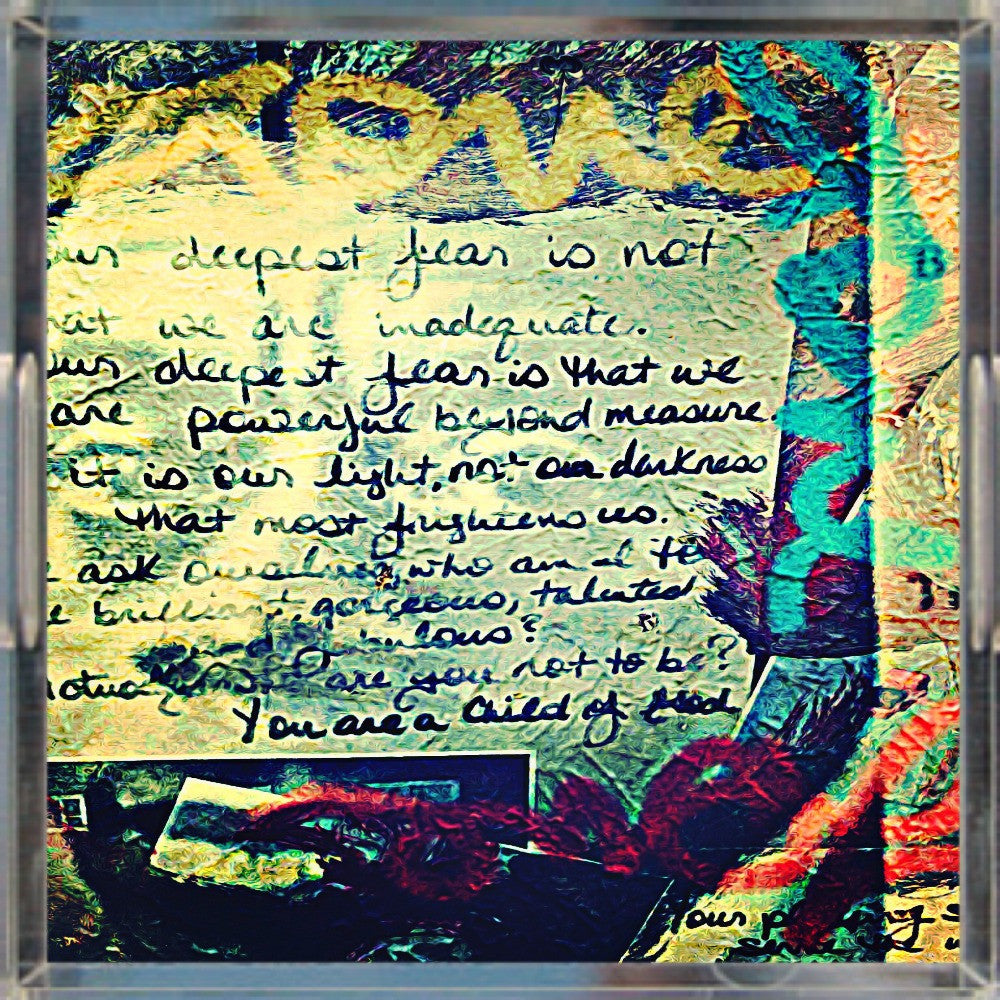 deepest fear is not
we are inadequate.
deepest fear is that we
are powerful beyond measure.
it is our light, not our darkness
that most frightens us.
ask ourselves, who am I to
brilliant, gorgeous, talented
and fabulous?
are you not to be?
You are a Child of God
Your playing s